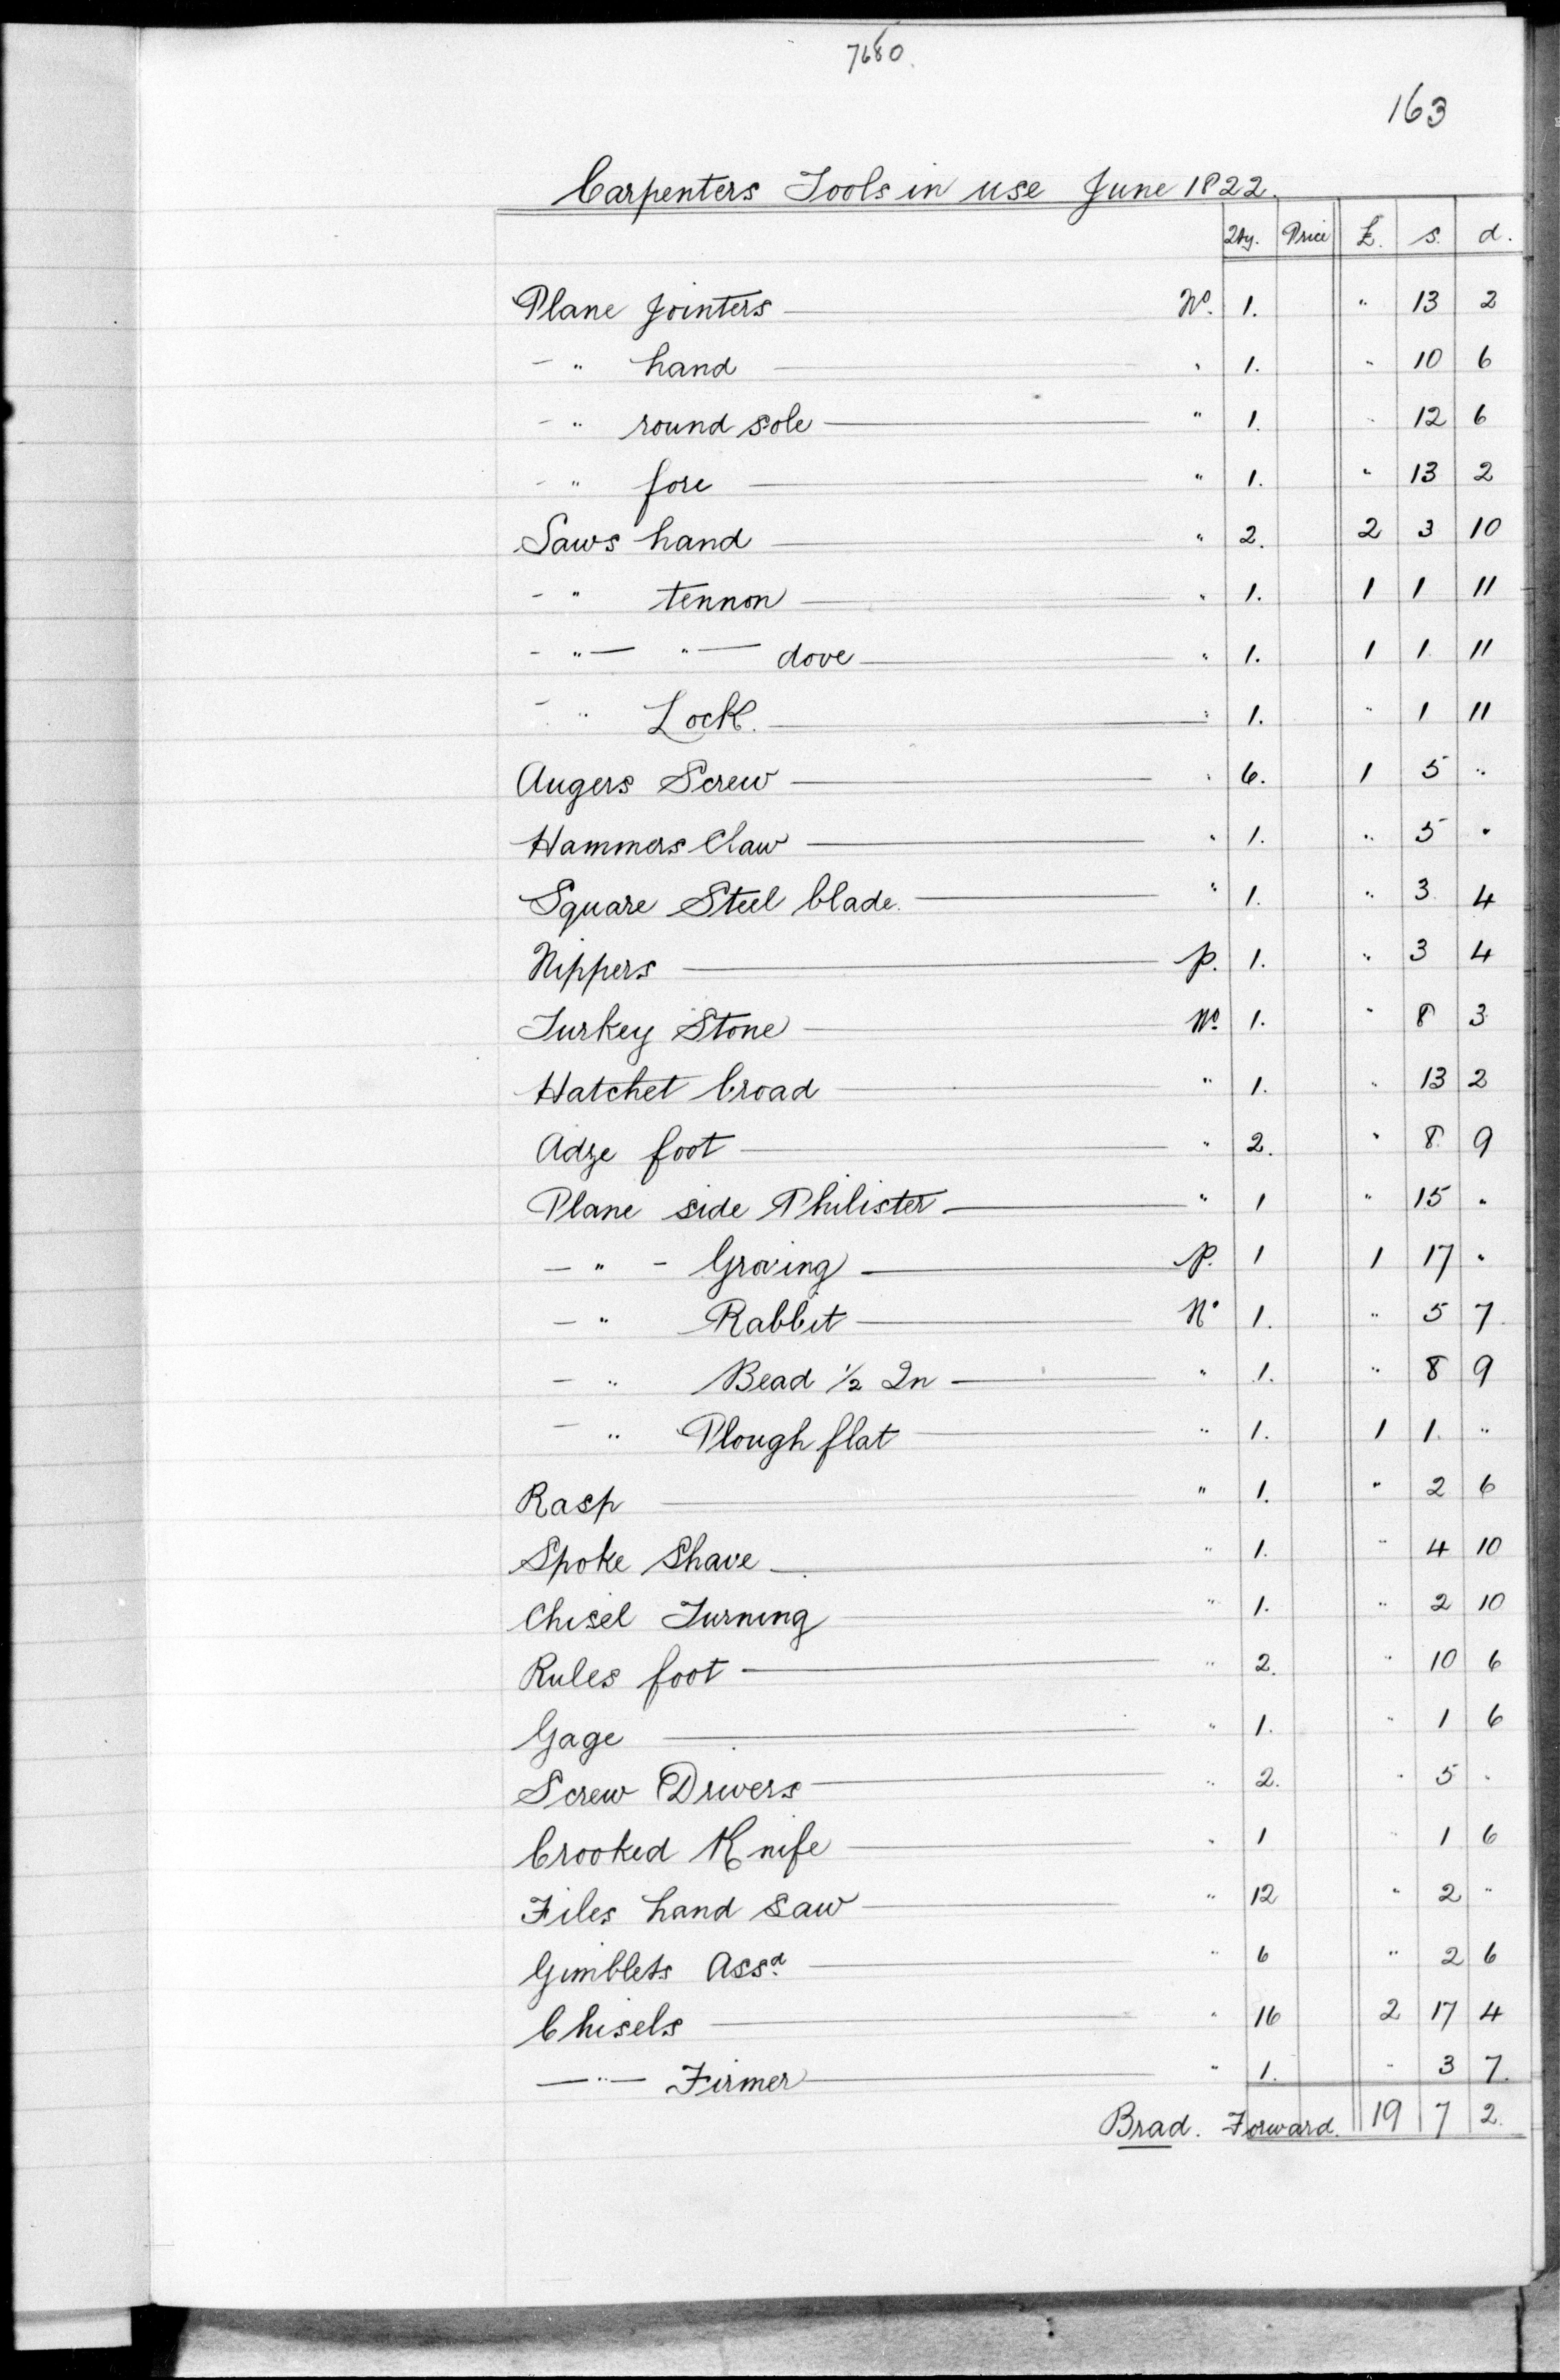 7680.
163
Carpenters Tools in use June 1822.
Qty. Price £. s. d.
Plane Jointers No. 1. " 13 2
- " hand " 1. " 10 6
- " round sole " 1. " 12 6
- " fore " 1. " 13 2
Saws hand " 2. 2 3 10
- " tennon " 1. 1 1 11
- " - " - dove " 1. 1 1 11
- " Lock. " 1. " 1 11
Augers Screw " 6. 1 5 "
Hammers Claw " 1. " 5 "
Square Steel blade. " 1. " 3 4
Nippers p. 1. " 3 4
Turkey Stone No 1. " 8 3
Hatchet broad " 1. " 13 2
Adze foot " 2. " 8 9
Plane side Philister " 1 " 15 "
- " - Groving p. 1 1 17 "
- " Rabbit No 1. " 5 7
- " Bead ½ In " 1. " 8 9
- " Plough flat " 1. 1 1 "
Rasp " 1. " 2 6
Spoke Shave " 1. " 4 10
Chisel Turning " 1. " 2 10
Rules foot " 2. " 10 6
Gage " 1. " 1 6
Screw Drivers " 2. " 5 "
Crooked Knife " 1 " 1 6
Files hand saw " 12 " 2 "
Gimblets Assd. " 6 " 2 6
Chisels " 16 2 17 4
- " - Firmer " 1. " 3 7.
Brad. Forward. 19 7 2.